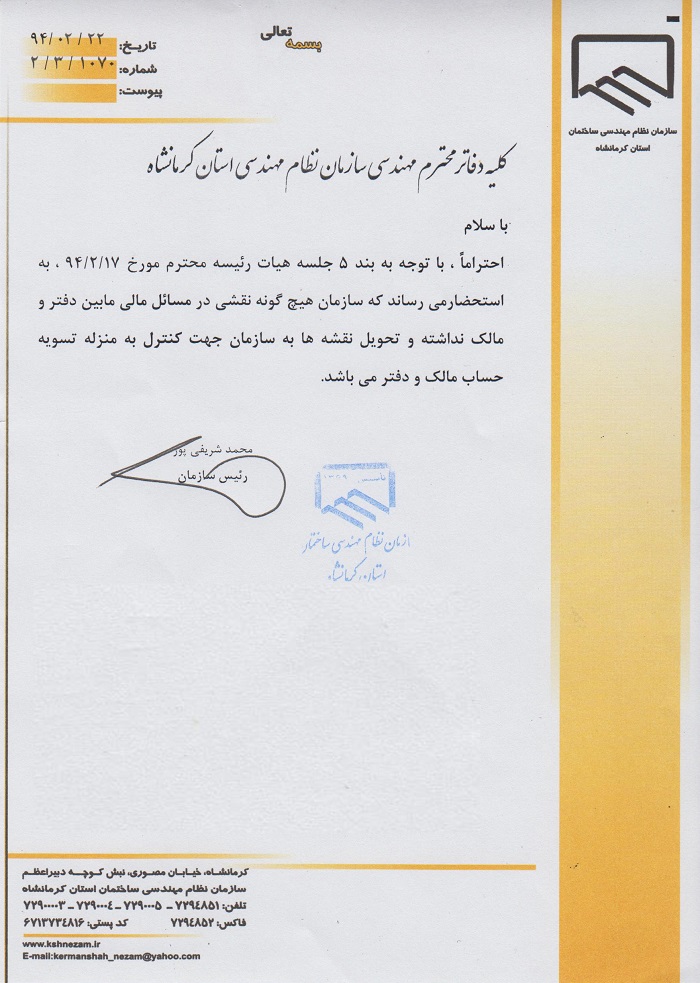 بسمه تعالی
تاریخ: ۹۴/۰۲/۲۲
شماره: ۲/۳/۱۰۷۰
پیوست:
سازمان نظام مهندسی ساختمان
استان کرمانشاه
کلیه دفاتر محترم مهندسی سازمان نظام مهندسی استان کرمانشاه
با سلام
احتراماً ، با توجه به بند ۵ جلسه هیات رئیسه محترم مورخ ۹۴/۲/۱۷ ، به
استحضارمی رساند که سازمان هیچ گونه نقشی در مسائل مالی مابین دفتر و
مالک نداشته و تحویل نقشه ها به سازمان جهت کنترل به منزله تسویه
حساب مالک و دفتر می باشد.
محمد شریفی پور
رئیس سازمان
تاسیس ۱۳۷۶
ازمان نظام مهندسی ساختمار
استان کرمانشاه
کرمانشاه، خیابان مصوری، نبش کوچه دبیراعظم
سازمان نظام مهندسی ساختمان استان کرمانشاه
تلفن: ۷۲۹۴۸۵۱ - ۷۲۹۰۰۰۵ - ۷۲۹۰۰۰۴ - ۷۲۹۰۰۰۳
فاکس: ۷۲۹۴۸۵۲ کد پستی: ۶۷۱۳۷۳۴۸۱۶
www.kshnezam.ir
E-mail:kermanshah_nezam@yahoo.com